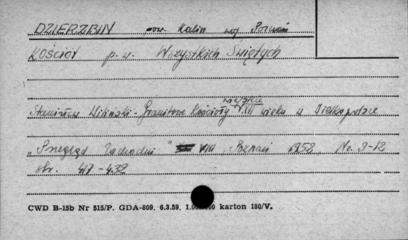 DZIERZBIN pow. Kalisz woj Poznań
Kościół p.w. Wszystkich Świętych
wiejskie
Stanisław Wiliński - Granitowe Kościoły XIII wieku w Wielkopolsce
„Przegląd Zachodni" VIII Poznań 1952, Nr. 9-12
str. 417-432
CWD B-15b Nr 515/P. GDA-809, 6.3.59, karton 180/V.